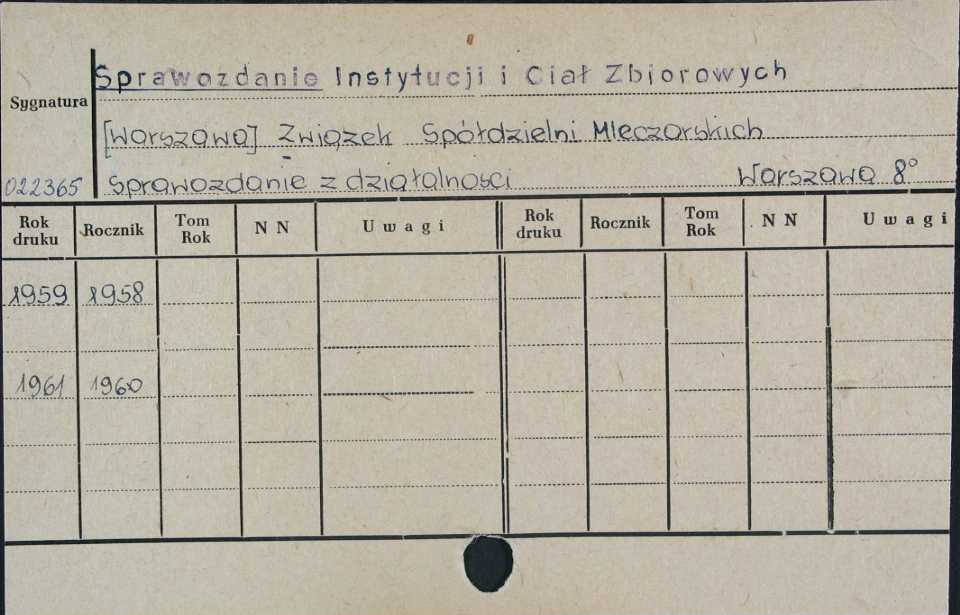 Sprawozdanie Instytucji i Ciał Zbiorowych
Sygnatura
[Warszawa] Związek Spółdzielni Mleczarskich
022365 Sprawozdanie z działalności Warszawa 8°
Rok druku Rocznik Tom Rok N N Uwagi Rok druku Rocznik Tom Rok N N Uwagi
1959 1958
1961 1960